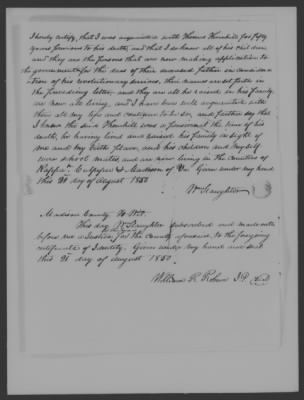 I hereby certify, that I was acquainted with Thomas Thornhill for fifty
years previous to his death, and that I do know all of his children
and they are the persons that are now making application to
the government for the dues of their deceased father in consideration
of his revolutionary services, their names are set forth in
the preceding letter, and they are all his raised in his family
are now all living, and I have been well acquainted with
them all my life and continue to be so, and further say that
I know the said Thornhill was a pensioner at the time of his
death, he having lived and raised his family in sight of
me and my birth place, and his children and myself
were school mates, and are now living in the counties of
Rappa. Culpeper & Madison of Va. Given under my hand
this 21 day of August 1850
Wm Slaughter
Madison County to Wit,
This day Wm Slaughter subscribed and made oath
before me a Justice for the County aforesaid, to the foregoing
certificate of Identity. Given under my hand and seal
this 21 day of August 1850.
William R. J.P.